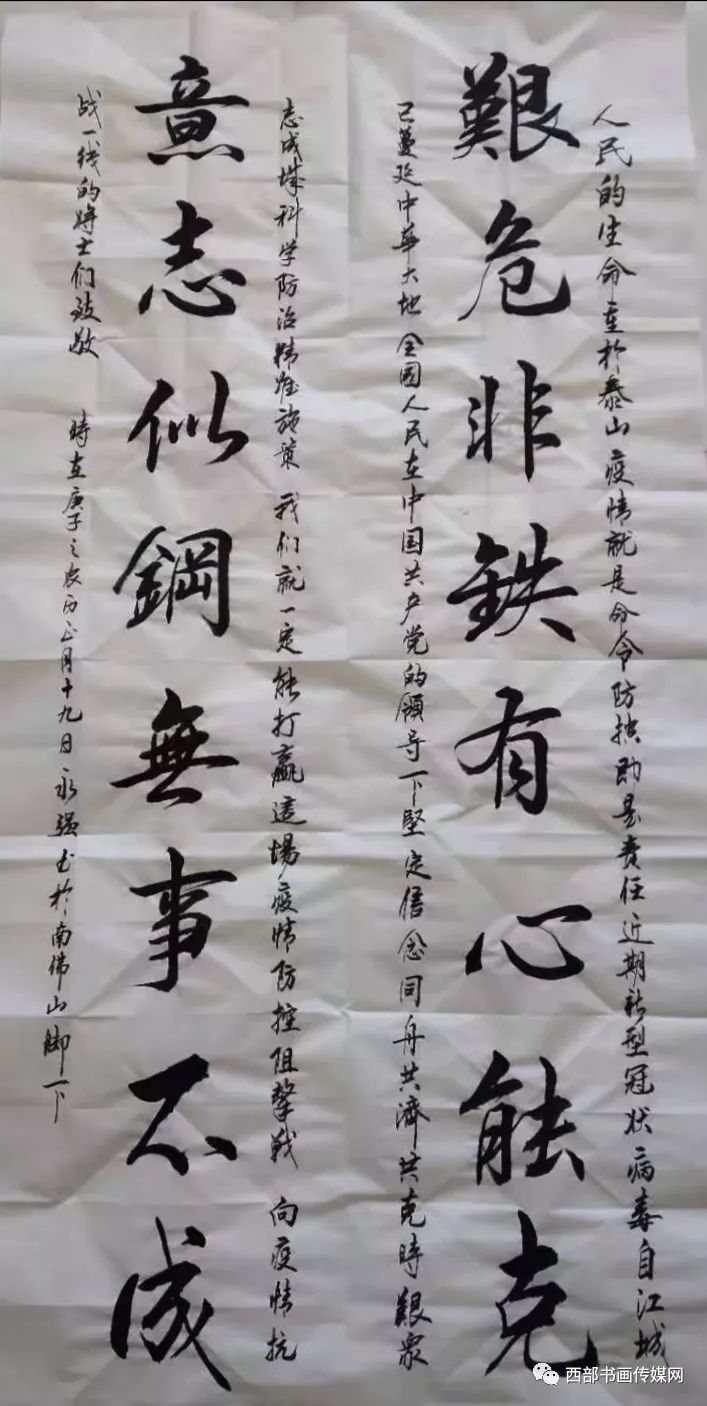 人民的生命重於泰山疫情就是命令防控即是责任近期新型冠状病毒自江城
艱危非鉄有心能克
已蔓延中华大地 全国人民在中国共产党的领导下堅定信念同舟共濟共克時艱眾
志成城科学防治精准施策 我们就一定能打赢這場疫情防控阻擊战 向疫情抗
意志似鋼無事不成
战一线的将士们致敬 時在庚子之农历正月十九日永强书於南佛山脚下
西部书画传媒网